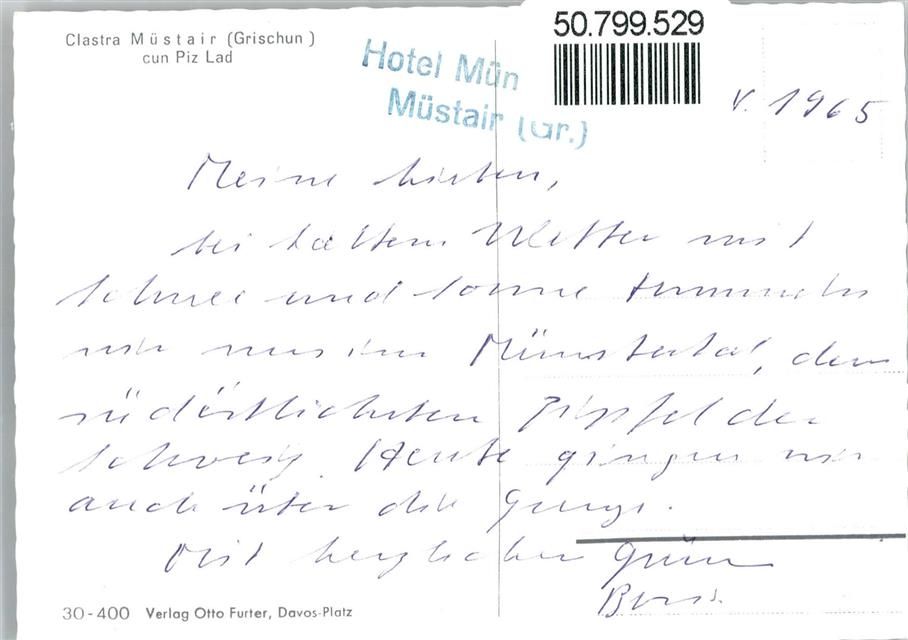 Clastra Müstair (Grischun)
cun Piz Lad
50.799.529
Hotel Mün
Müstair (Gr.)
V. 1965
Meine Lieben,
bei kaltem Wetter mit
Schnee und Sonne tummeln
wir uns im Münstertal, dem
südöstlichsten Zipfel der
Schweiz. Heute gingen wir
auch über die Grenze.
Mit herzlichen
30-400 Verlag Otto Furter, Davos-Platz